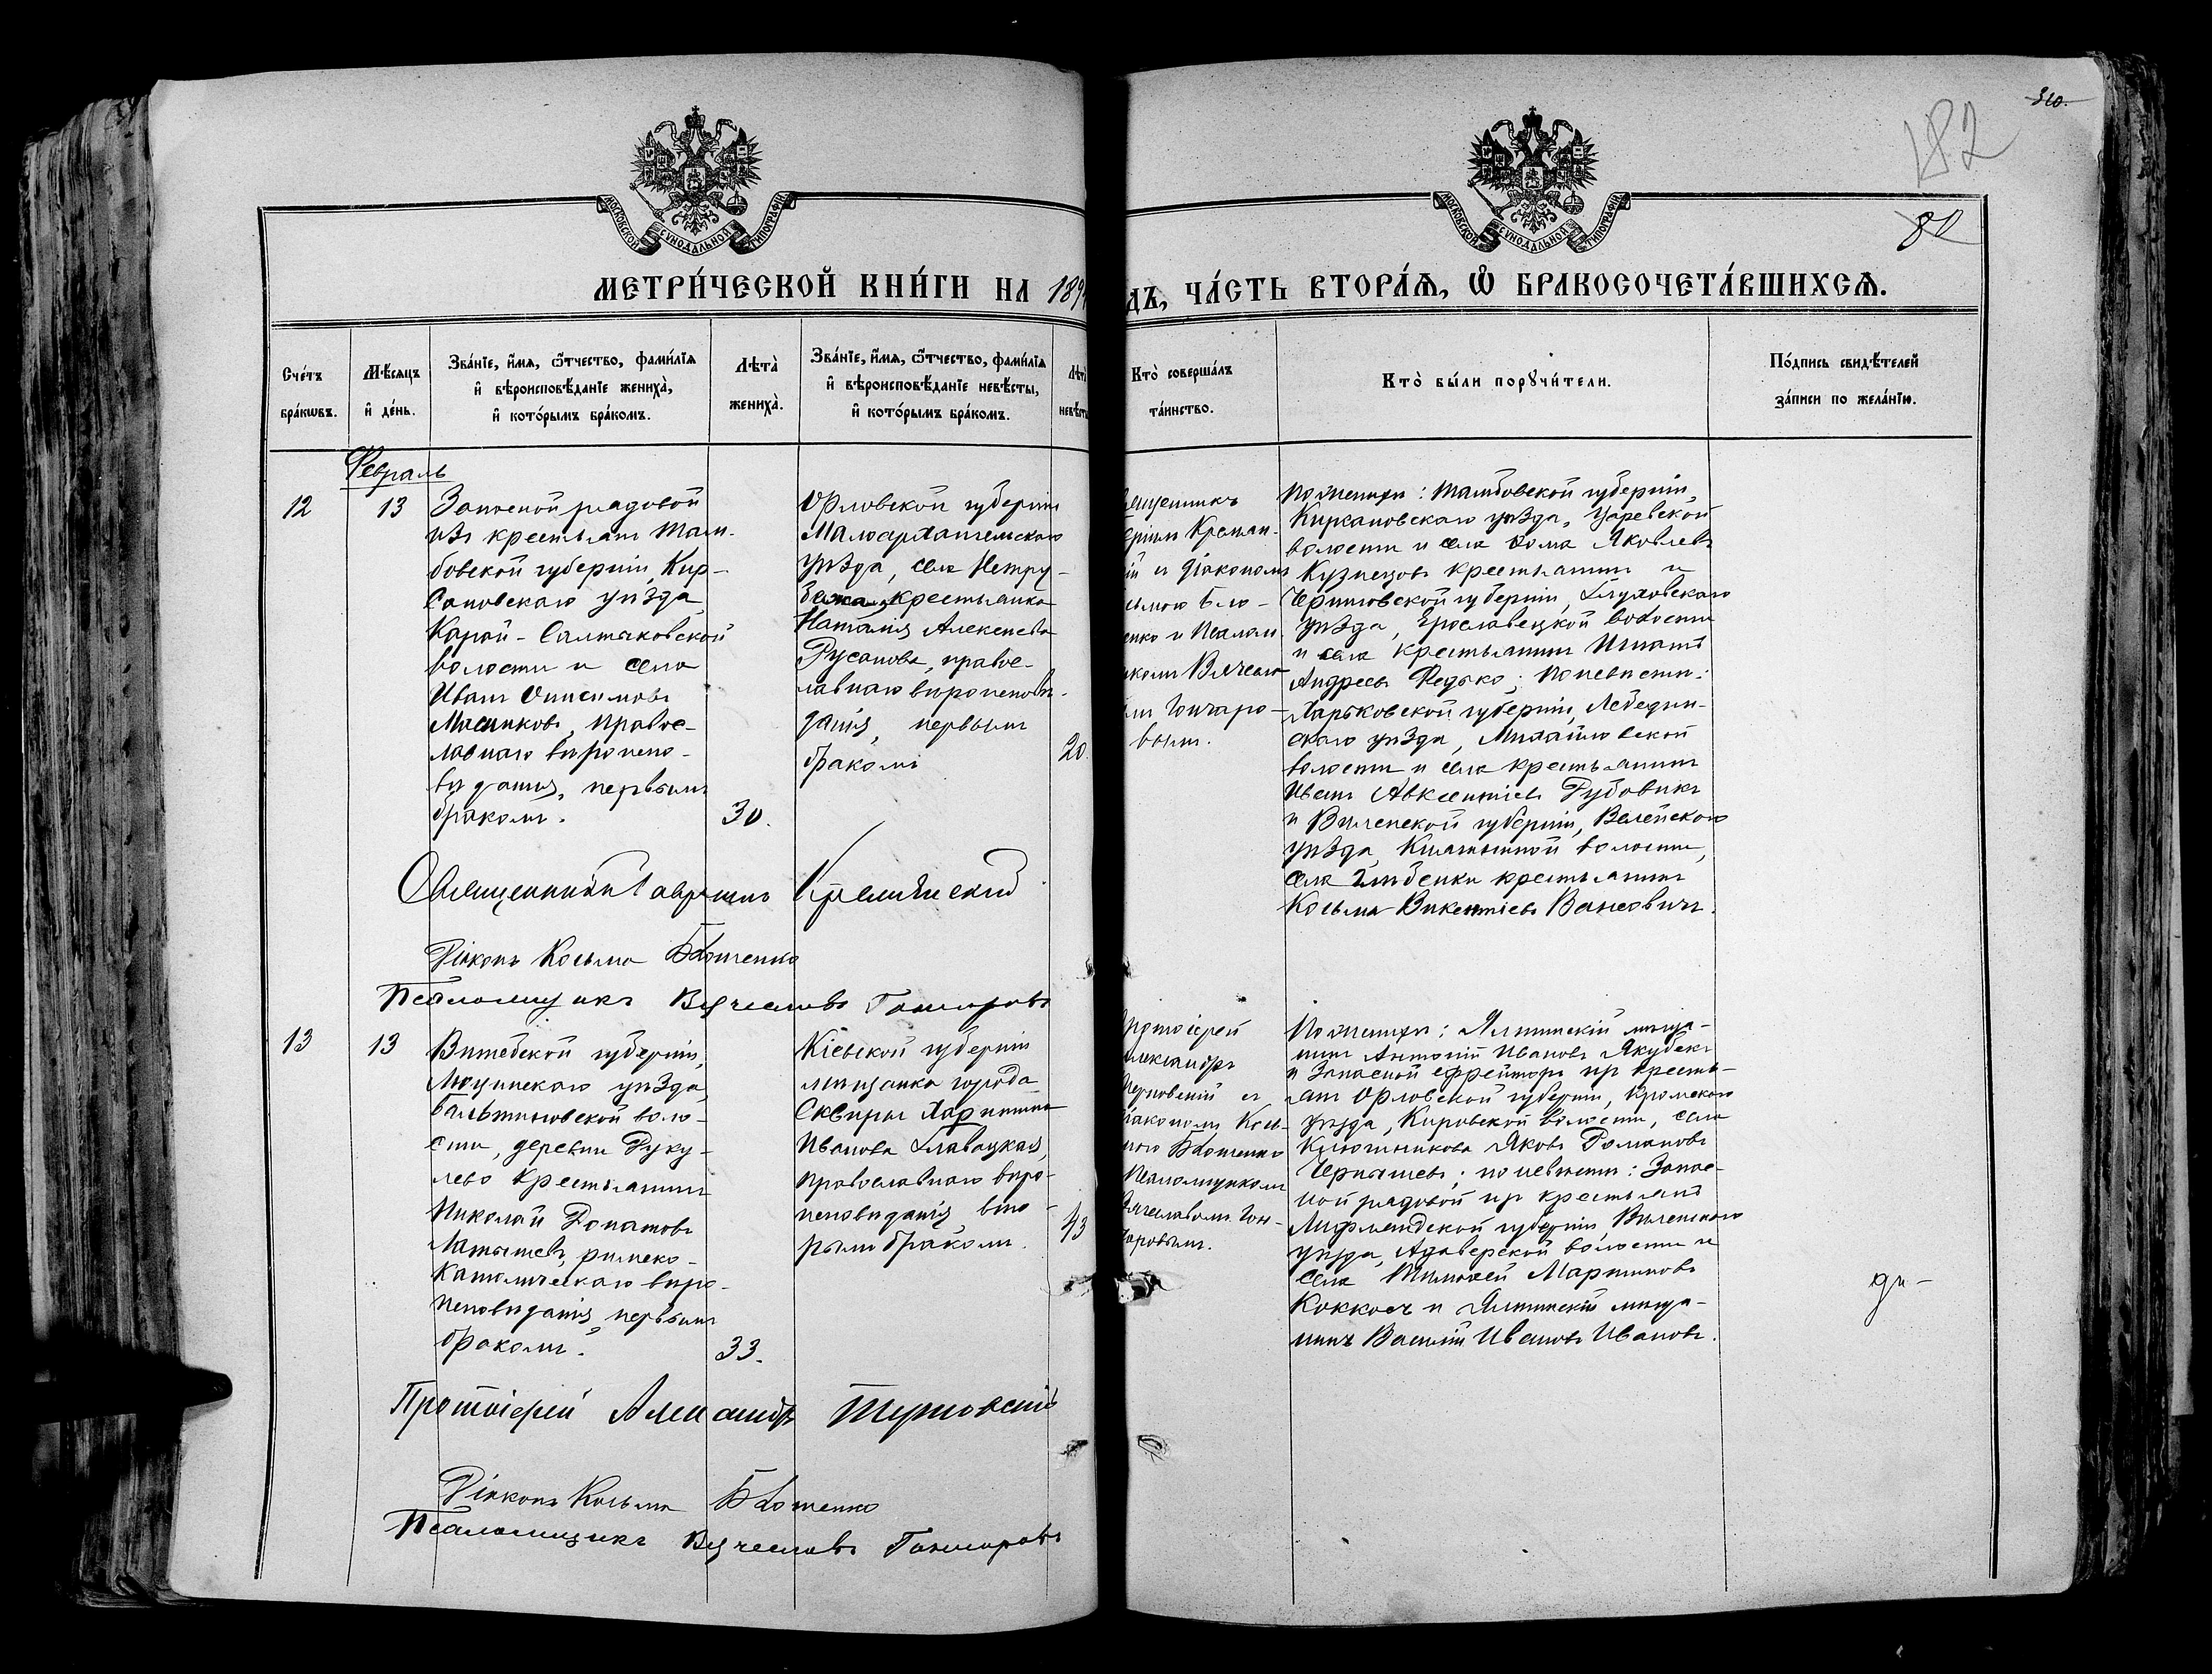 310.
182
80
МОСКОВСКОЙ СУНОДАЛЬНОЙ ТИПОГРАФІИ
МОСКОВСКОЙ СУНОДАЛЬНОЙ ТИПОГРАФІИ
МЕТРИ́ЧЕСКОЙ КНИ́ГИ НА 189
ДЪ, ЧА́СТЬ ВТОРА́Я, Ѡ БРАКОСОЧЕТА́ВШИХСЯ.
Сче́тъ
бра́кѡвъ.
Мѣ́сяцъ
и҆ де́нь.
Зва́нїе, и҆́мя, ѻ҆́тчество, фами́лїя
и҆ вѣроисповѣ́данїе жениха̀,
и҆ кото́рымъ бра́комъ.
Лѣта̀
жениха̀.
Зва́нїе, и҆́мя, ѻ҆́тчество, фами́лїя
и҆ вѣроисповѣ́данїе невѣ́сты,
и҆ кото́рымъ бра́комъ.
Лѣта
невѣст
Кто̀ соверша́лъ
та́инство.
Кто̀ бы́ли порꙋчи́тели.
По́дпись свидѣ́телей
за́писи по жела́нїю.
Февраль
12
13
Запасной рядовой
изъ крестьянъ Там-
бовской губерніи, Кир-
сановскаго уѣзда,
Карай-Салтыковской
волости и села
Иванъ Онисимовъ
православ-
лавнаго вѣроиспо-
вѣданія, первымъ
бракомъ.
30.
Орловской губерніи
Малоархангельскаго
уѣзда, села
крестьянка
Наталія Алексѣева
Русанова, правос-
лавнаго вѣроисповѣ-
данія, первымъ
бракомъ
20.
ященникъ
Кремян-
й съ діакономъ
ьмою Бло-
енко и Псалом-
комъ Вячесла
мъ Гончаро-
вымъ.
По женихѣ: Тамбовской губерніи,
Кирсановскаго уѣзда, Царевской
волости и села Ѳома Яковлевъ
Кузнецовъ крестьянинъ и
Черниговской губерніи, Глуховскаго
уѣзда, Ярославецкой волости
и села крестьянинъ Игнатъ
Андреевъ Редько; По невѣстѣ:
Харьковской губерніи, Лебедин-
скаго уѣзда, Михайловской
волости и села крестьянинъ
Иванъ Авксентіевъ Рубовикъ
и Виленской губерніи, Вилейскаго
уѣзда, волости,
села крестьянинъ
Косьма Викентіевъ
Священникъ Гавріилъ Кремянскій
Діаконъ Косьма Блошенко
Псаломщикъ Вячеславъ Гончаровъ
13
13
Витебской губерніи,
Люцинскаго уѣзда,
Бальтиновской воло-
сти, деревни Руку-
лево крестьянинъ
Николай Донатовъ
Латышевъ, римско-
католическаго вѣро-
исповѣданія, первымъ
бракомъ.
33.
Кіевской губерніи
мѣщанка города
Сквиры Харитина
Иванова Главацкая,
православнаго вѣро-
исповѣданія вто-
рымъ бракомъ.
43
ротоіерей
лександръ
Терновскій съ
іакономъ Кось-
мою Блошенко
Псаломщикомъ
ячеславомъ Гон-
чаровымъ.
По женихѣ: Ялтинскій мѣща-
нинъ Антоній Ивановъ Якубекъ
и Запасной ефрейторъ изъ кресть-
янъ Орловской губерніи, Кромскаго
уѣзда, Кировской волости, села
Ключникова Яковъ Романовъ
Чернышевъ; по невѣстѣ: Запас-
ной рядовой изъ крестьянъ
Лифляндской губерніи,
уѣзда, волости и
села Тимоѳей Мартиновъ
Коккосъ и Ялтинскій мѣща-
нинъ Василій Ивановъ Ивановъ.
Протоіерей Александръ Терновскій
Діаконъ Косьма Блошенко
Псаломщикъ Вячеславъ Гончаровъ